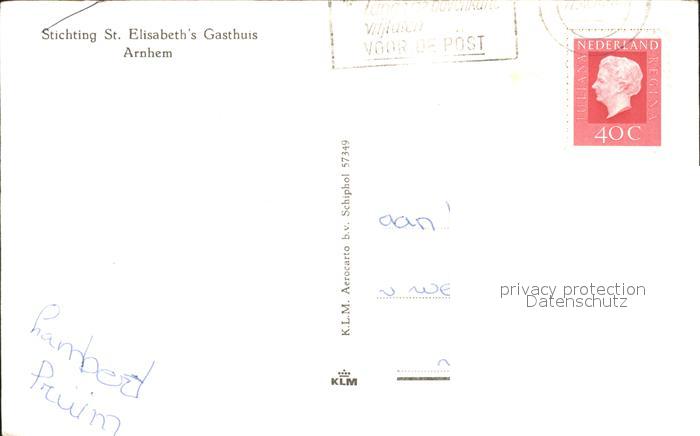 Stichting St. Elisabeth's Gasthuis
Arnhem
vrijlaten
VOOR DE POST
NEDERLAND
JULIANA
REGINA
40 C
K.L.M. Aerocarto b.v. Schiphol 57349
KLM
aan
privacy protection
Datenschutz
Lambert
Pruim